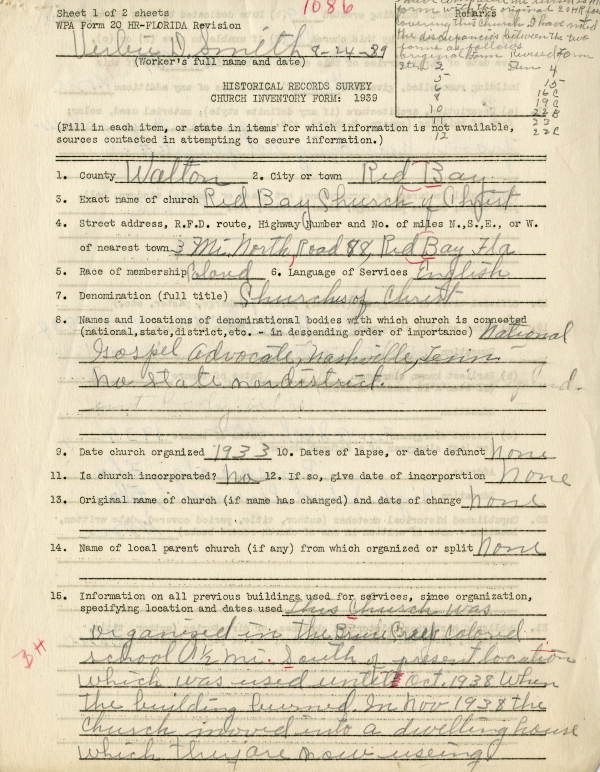 Sheet 1 of 2 sheets
1086
WPA Form 20 HR-FLORIDA Revision
Remarks
form with the original 20 HR form
covering this Church I have noted
the discrepancies between the two
forms as follows
Original Form Revised Form
Item 3 Item 4
5 15
6 16C
8 19C
10 22B
11 23
12 22C
Verbie D. Smith 8-24-39
(Worker's full name and date)
HISTORICAL RECORDS SURVEY
CHURCH INVENTORY FORM: 1939
(Fill in each item, or state in items for which information is not available,
sources contacted in attempting to secure information.)
1. County Walton 2. City or town Red Bay
3. Exact name of church Red Bay Church of Christ
4. Street address, R.F.D. route, Highway Number and No. of miles N.,S.,E., or W.
of nearest town 3 Mi. North, Road 88, Red Bay, Fla
5. Race of membership Colored 6. Language of Services English
7. Denomination (full title) Churches of Christ
8. Names and locations of denominational bodies with which church is connected
(national,state,district,etc. - in descending order of importance) National
Gospel Advocate, Nashville, Tenn.
No State nor district.
9. Date church organized 1933 10. Dates of lapse, or date defunct None
11. Is church incorporated? No 12. If so, give date of incorporation None
13. Original name of church (if name has changed) and date of change None
14. Name of local parent church (if any) from which organized or split None
15. Information on all previous buildings used for services, since organization,
specifying location and dates used This Church was
organized in the Bruce Creek colored
BH
school 1½ mi. South of present location
which was used until Oct. 1938 When
the building burned. In Nov 1938 the
Church moved into a dwelling house
which they are now useing